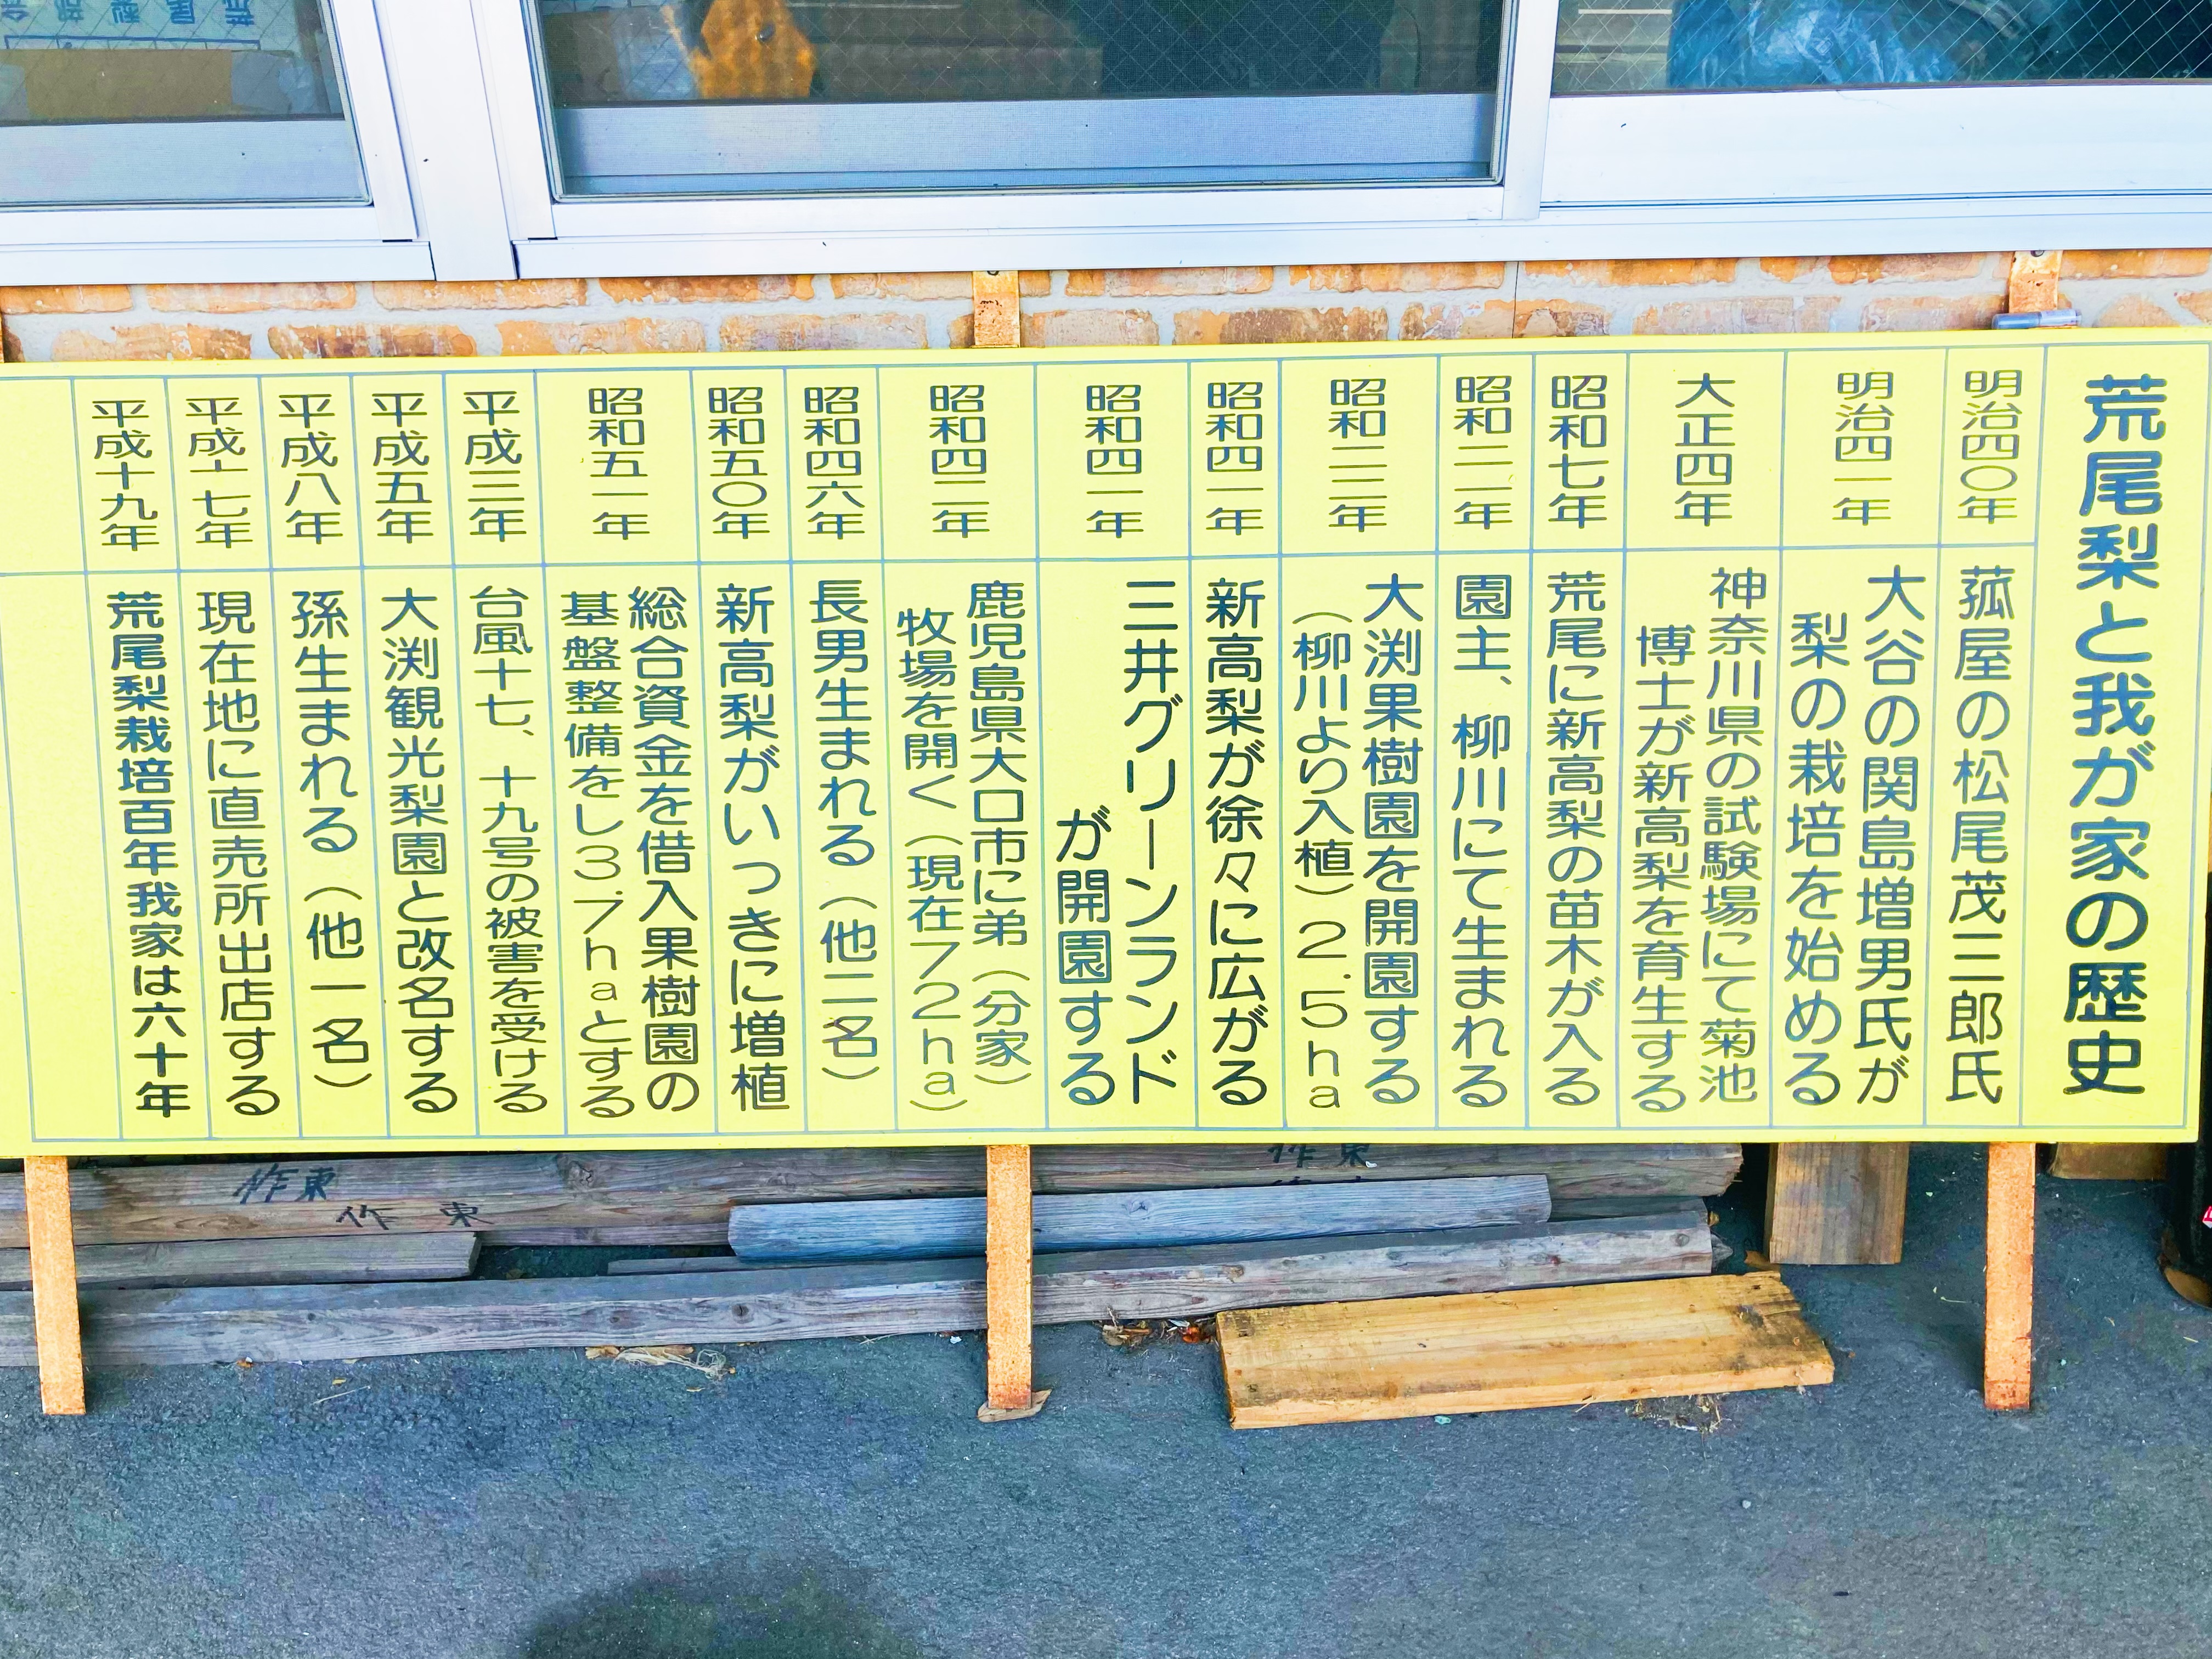 荒尾梨と我が家の歴史
明治四〇年
菰屋の松尾茂三郎氏
明治四一年
大谷の関島増男氏が
梨の栽培を始める
大正四年
神奈川県の試験場にて菊池
博士が新高梨を育生する
昭和七年
荒尾に新高梨の苗木が入る
昭和二一年
園主、柳川にて生まれる
昭和二三年
大渕果樹園を開園する
（柳川より入植）2.5ha
昭和四一年
新高梨が徐々に広がる
昭和四一年
三井グリーンランド
が開園する
昭和四二年
鹿児島県大口市に弟（分家）
牧場を開く（現在72ha）
昭和四六年
長男生まれる（他二名）
昭和五〇年
新高梨がいっきに増植
昭和五一年
総合資金を借入果樹園の
基盤整備をし3.7haとする
平成三年
台風十七、十九号の被害を受ける
平成五年
大渕観光梨園と改名する
平成八年
孫生まれる（他一名）
平成十七年
現在地に直売所出店する
平成十九年
荒尾梨栽培百年我家は六十年
作東
作東
作東